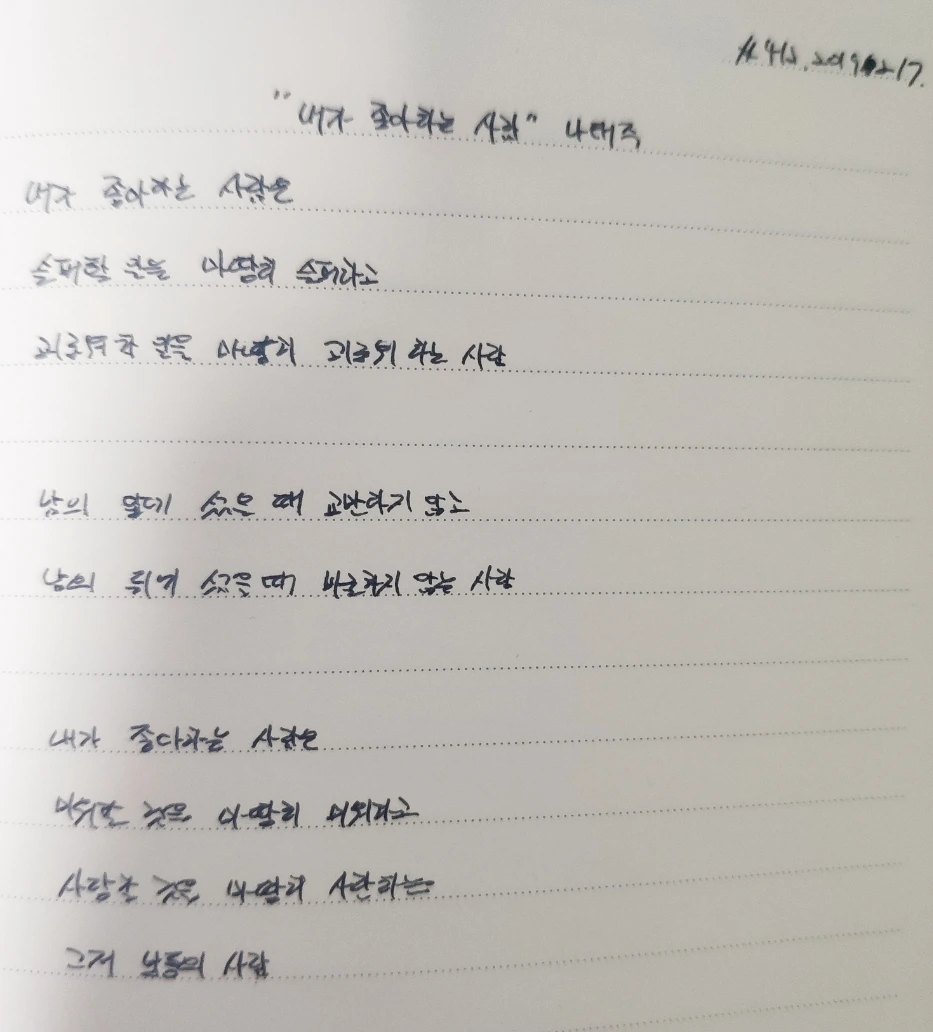 #412. 2019 2 17.
"내가 좋아하는 사람" 나태주
내가 좋아하는 사람은
슬퍼할 일을 마땅히 슬퍼하고
괴로워할 일을 마땅히 괴로워 하는 사람
남의 앞에 섰을 때 교만하지 않고
남의 뒤에 섰을 때 비굴하지 않는 사람
내가 좋아하는 사람은
미워할 것을 마땅히 미워하고
사랑할 것을 마땅히 사랑하는
그저 보통의 사람